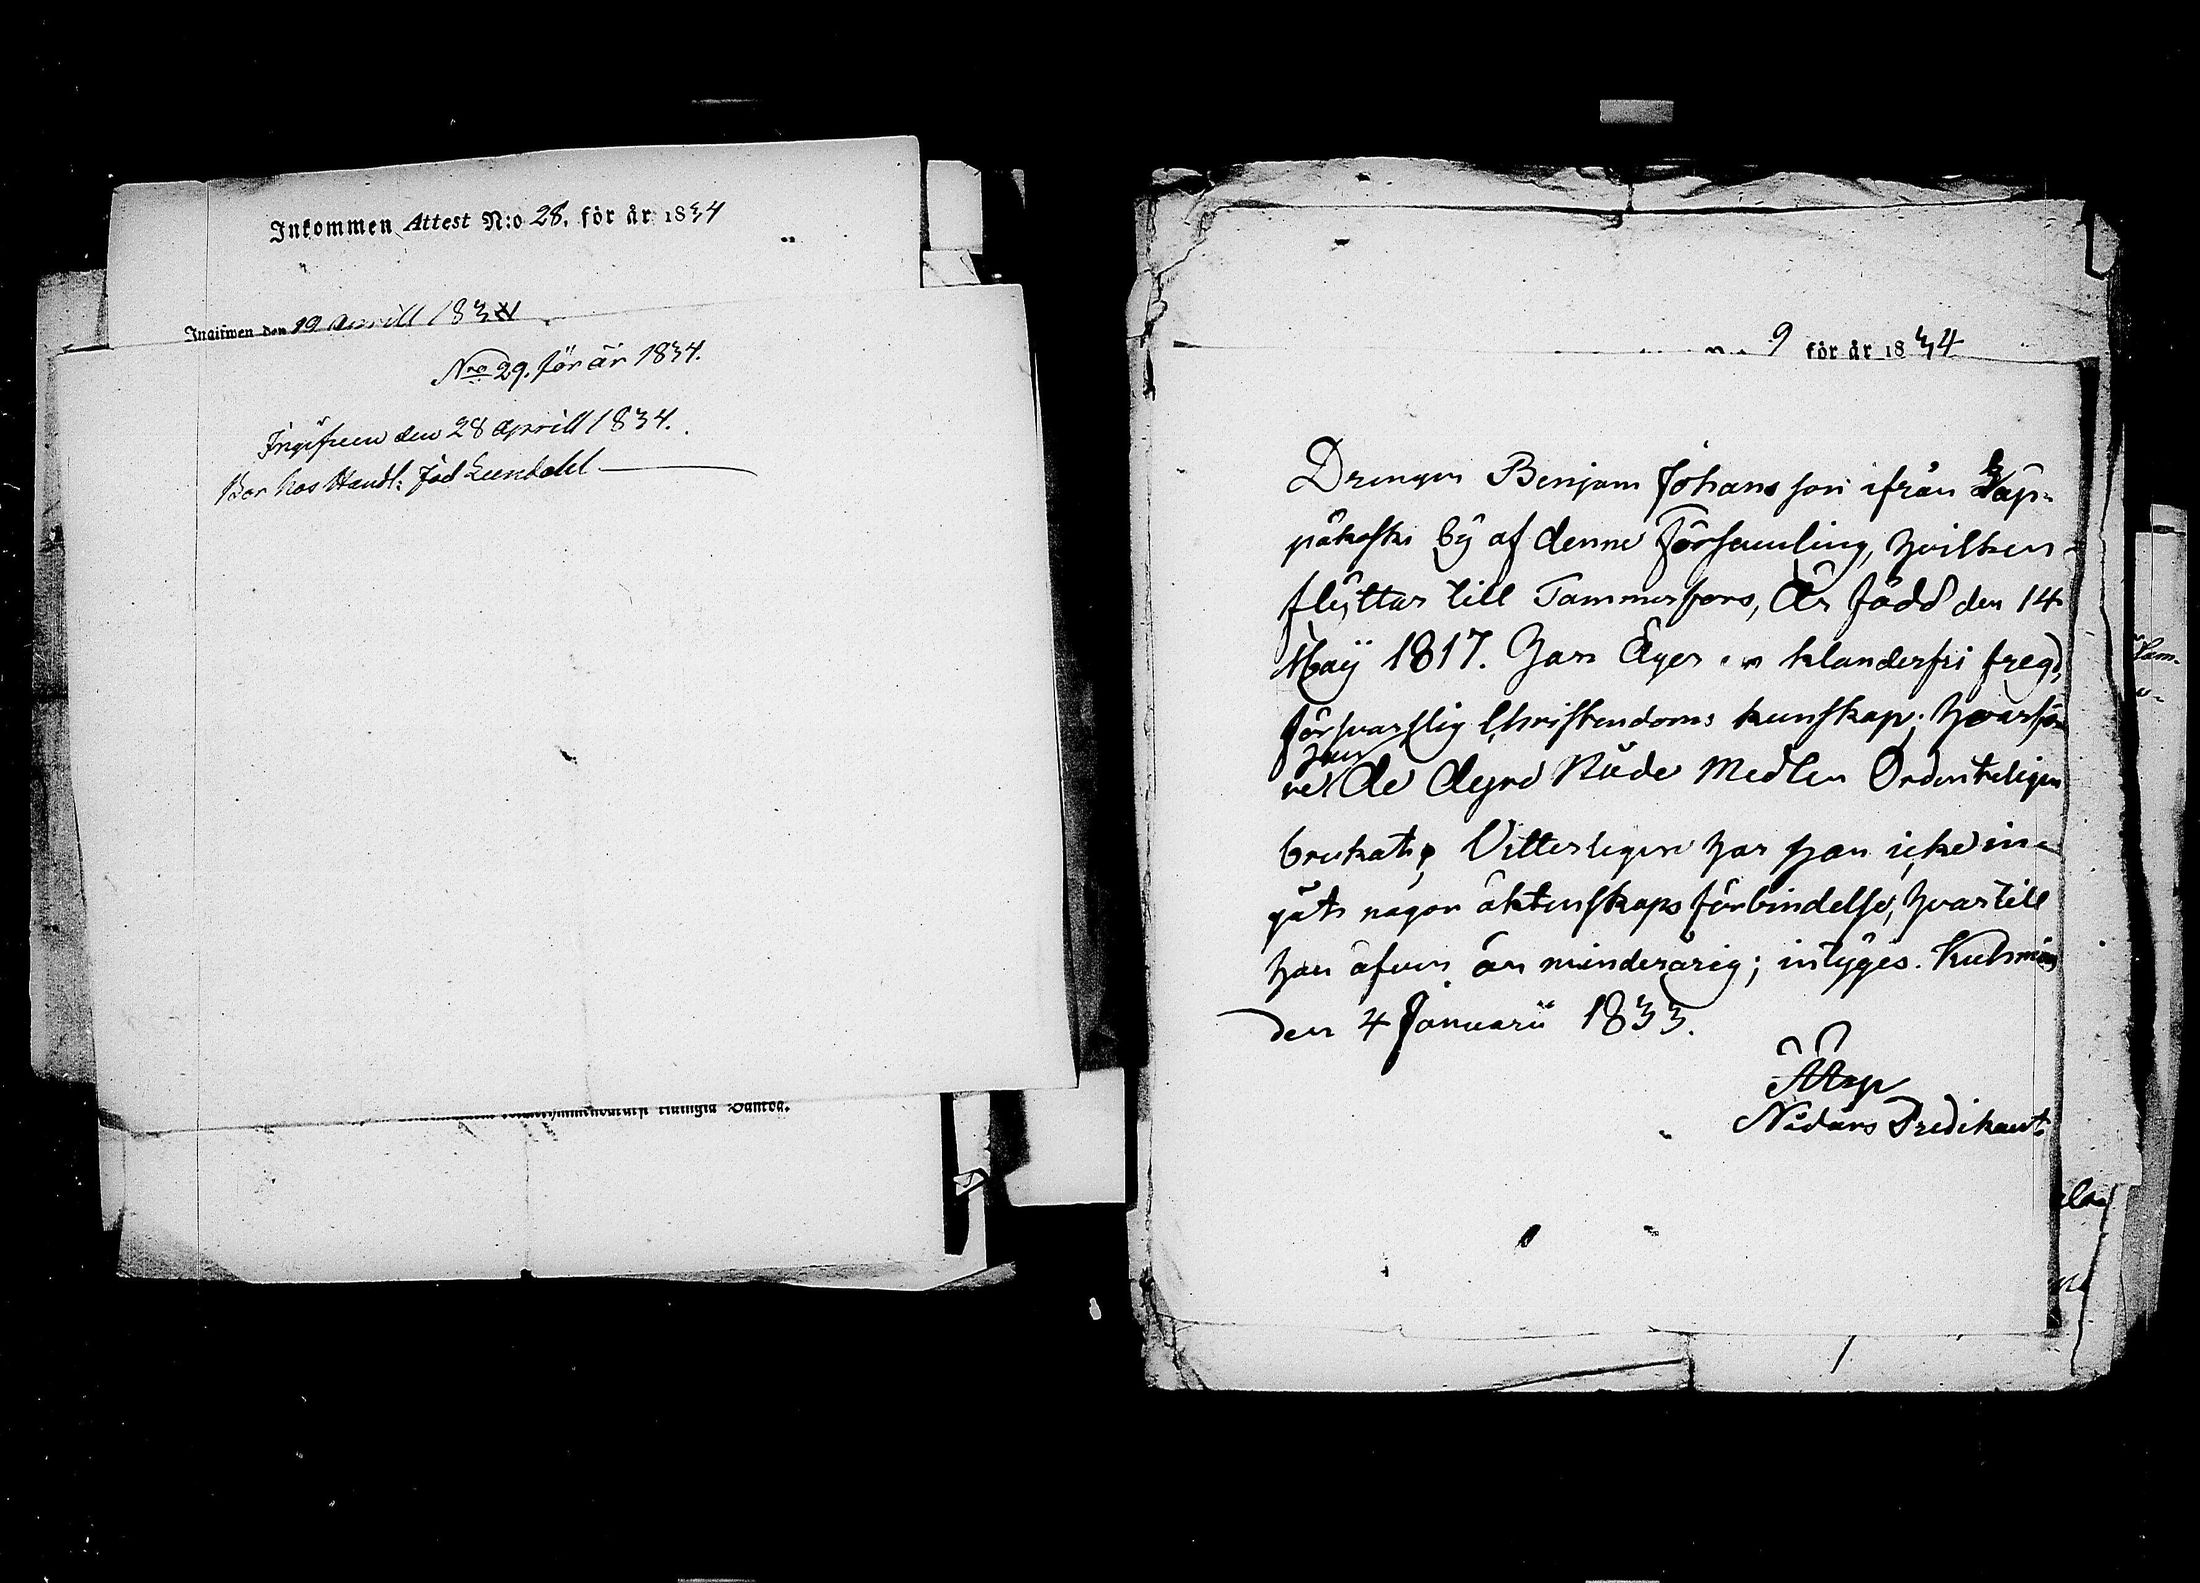 Inkommen Attest N:o 28. för år 1834
Ingifwen den 19 Aprill 1834
Nro 29. för år 1834.
Ingifven den 28 Aprill 1834.
Bor hos Handl: Lundahl
9 för år 1834
Drengen Benjam Johansson ifrån Kap-
päkoski by af denne Församling, hvilken
flyttar till Tammerfors, är född den 14
Maÿ 1817. Han äger en klanderfri fregd,
försvarslig Christendoms kunskap, hvarföre
han
de dyre Nåde Medlen Ordenteligen
brukat; Vitterligen har han icke in-
gåt någon äktenskaps förbindelse, hvartill
han äfven är minderårig; intyges. Kuhmois
den 4 Januarii 1833.
Nådårs Predikant